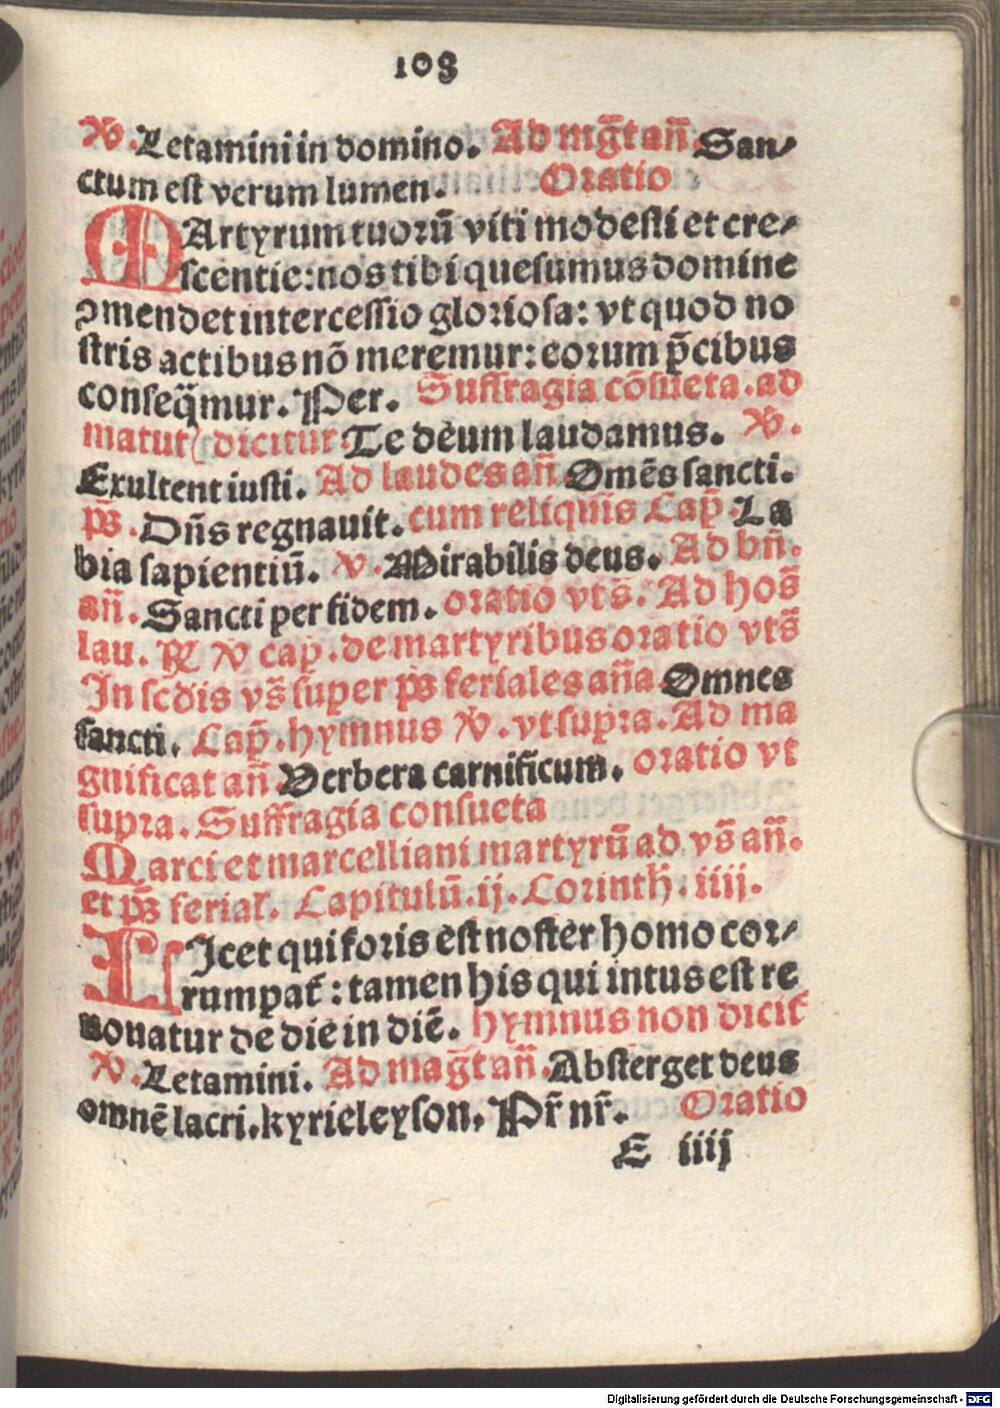 103
℣. Letamini in domino. Ad mg̅t an̅. San⸗
ctum est verum lumen. Oratio
MArtyrum tuorū viti modesti et cre⸗
scentie: nos tibi quesumus domine
ꝯmendet intercessio gloriosa: vt quod no
stris actibus nō meremur: eorum p̄cibus
conseq̄mur. Per. Suffragia cōsueta. ad
matut( dicitur Te deum laudamus. ℣.
Exultent iusti. Ad laudes an̄ Omēs sancti.
ps. Dn̄s regnauit. cum reliquis Cap̄. La
bia sapientiū. ℣. Mirabilis deus. Ad bn̄.
an̄. Sancti per fidem. oratio vts̄. Ad hos̄
lau. ℟ ℣ cap̄. de martyribus oratio vts̄
In scdis vs̄ super ps feriales an̄a Omnes
sancti. Cap̄. hymnus ℣. vt supra. Ad ma
gnificat an̄ Verbera carnificum. oratio vt
supra. Suffragia consueta
Marci et marcelliani martyrū ad vs̄ an̄.
et ps ferial. Capitulū. ij. Corinth. iiij.
LIcet qui foris est noster homo cor⸗
rumpat̄: tamen his qui intus est re
nouatur de die in diē. Hymnus non dicit̄
℣. Letamini. Ad mag̅t an̄. Absterget deus
omnē lacri. kyrieleyson. Pr̄ nr̄. Oratio
E iiij
Digitalisierung gefördert durch die Deutsche Forschungsgemeinschaft - DFG